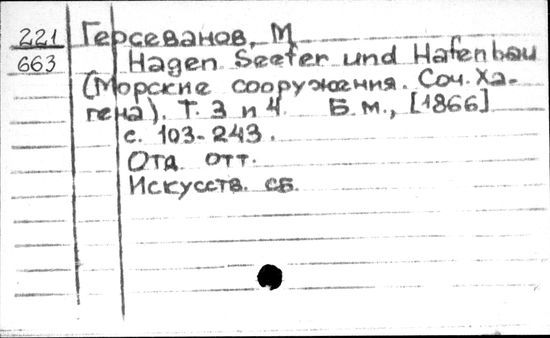 221 Герсеванов, М
663 Hagen Seefer und Hafenbau
(Морские сооружения. Соч. Ха-
гена). Т. 3 и 4. Б.м., [1866]
с. 103-243.
Отд. отт.
Искусств. сб.